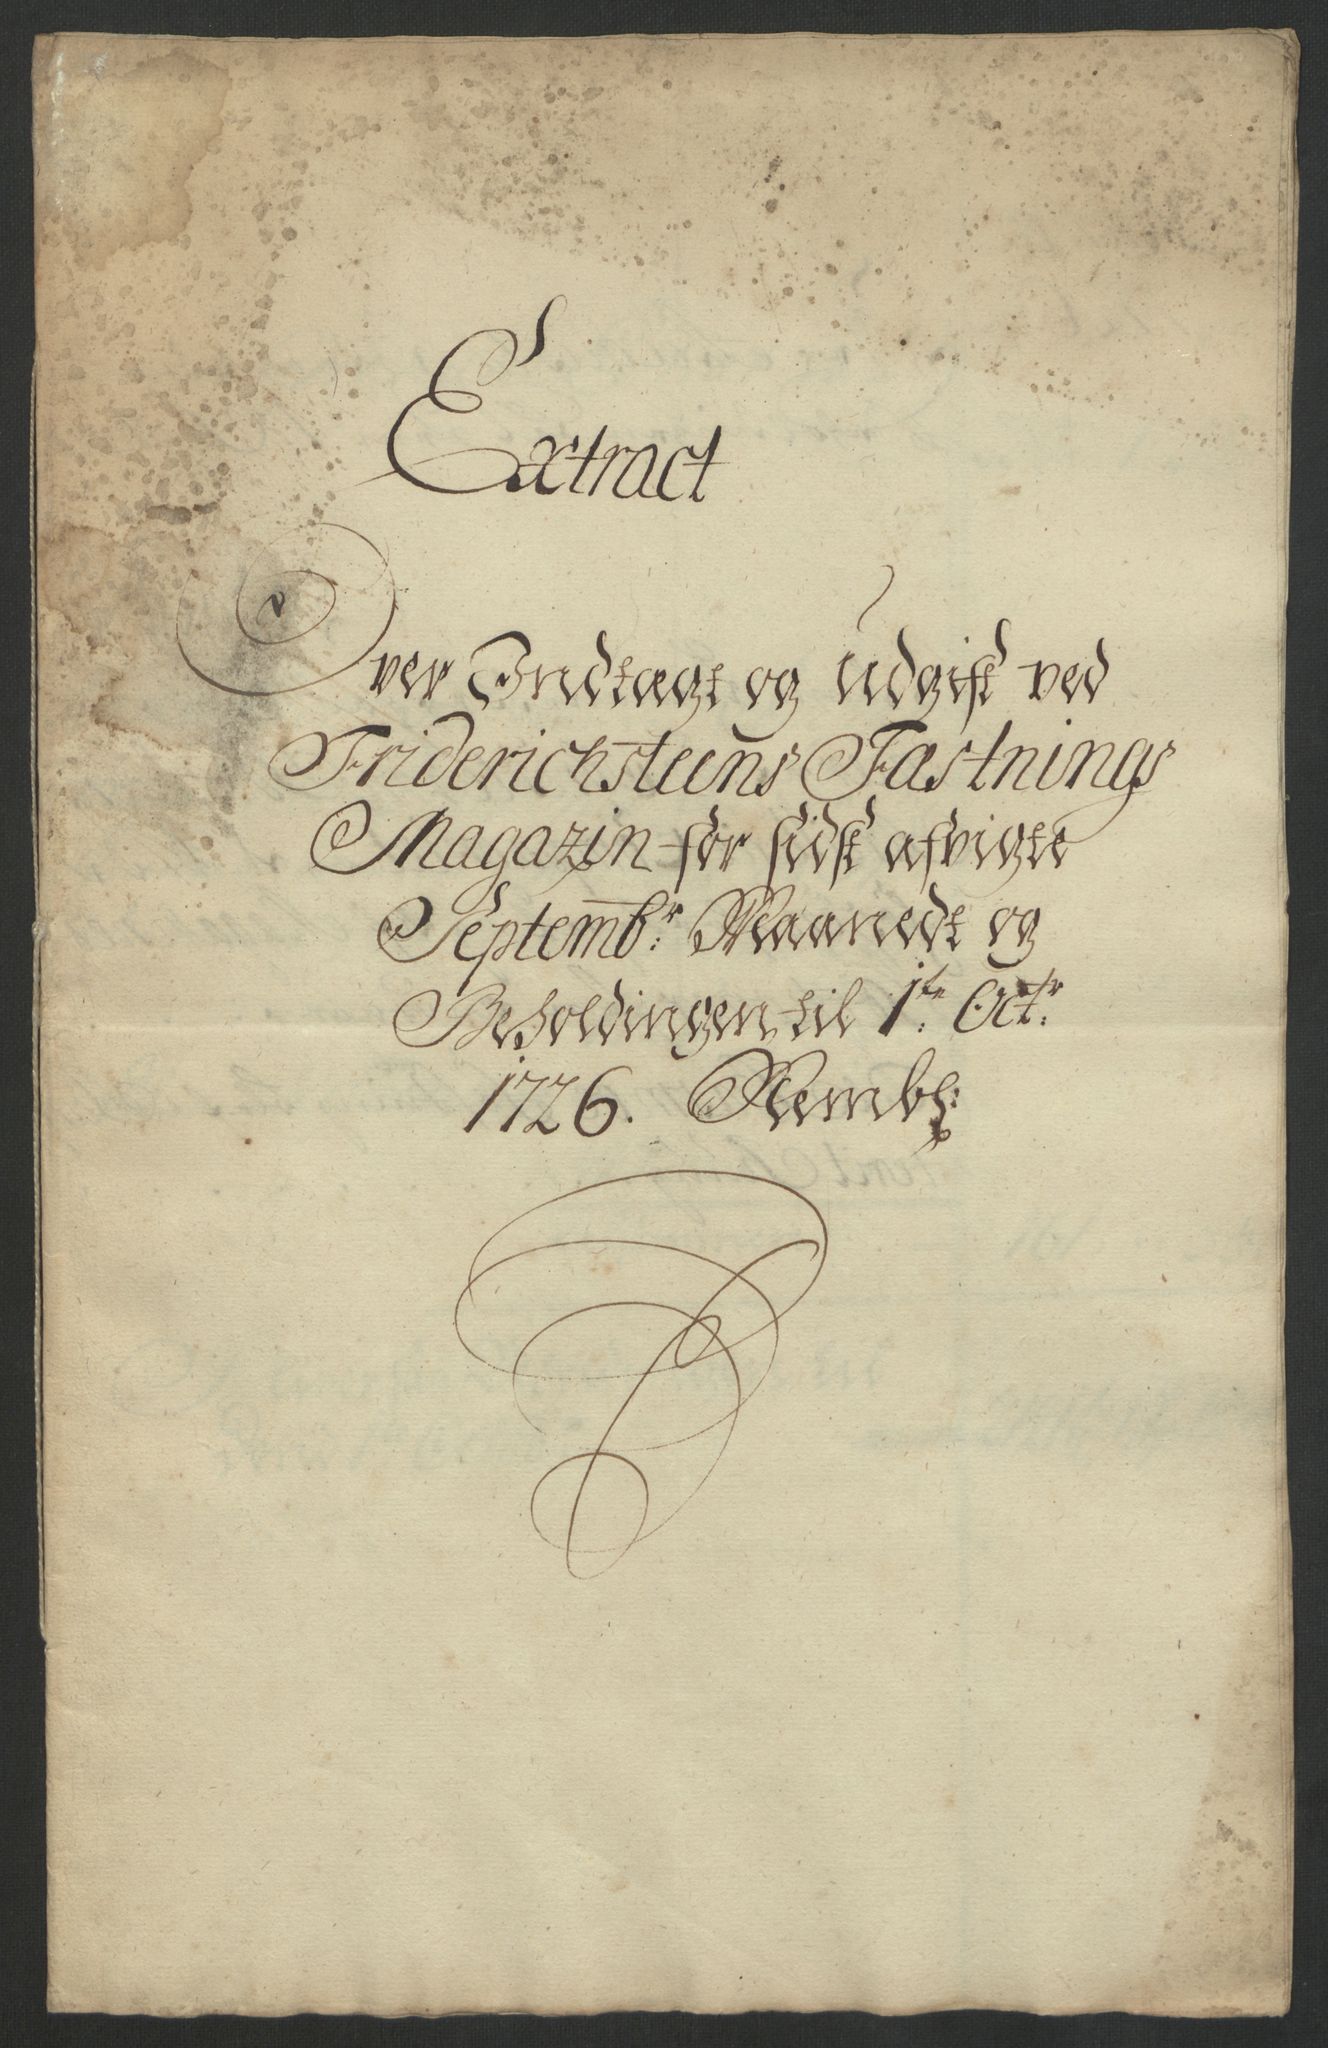 Extract
Over Indtægt og Udgift ved
Friderichsteens Fæstnings
Magazin for sidst afvigte
Septembr: Maanedt og
Beholdingen til 1te: Octr:
1726. Nembl: